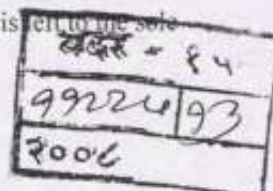 is left to the sole
बदर - १५
१३
२००८